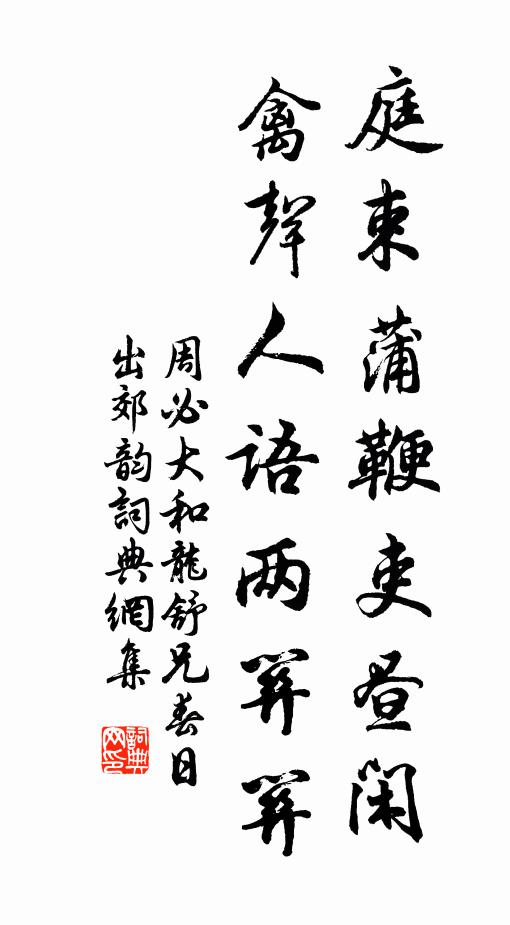 庭束蒲鞭吏昼闲
禽聲人语两關關
周必大和龍舒兄春日
出郊韵詞典網集
詞典网印